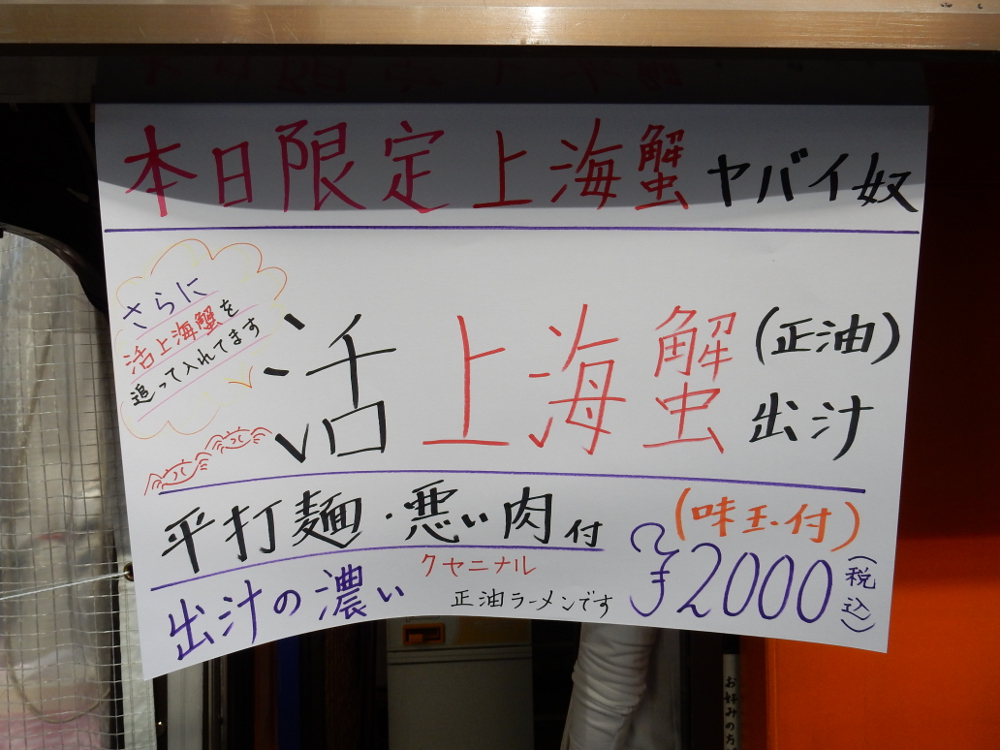 本日限定上海蟹ヤバイ奴
さらに
活上海蟹を
追って入れてます
活上海蟹
(正油)
出汁
平打麺・悪い肉付
(味玉付)
出汁の濃い
クヤニナル
正油ラーメンです
¥2000
(税込)
お好みの方